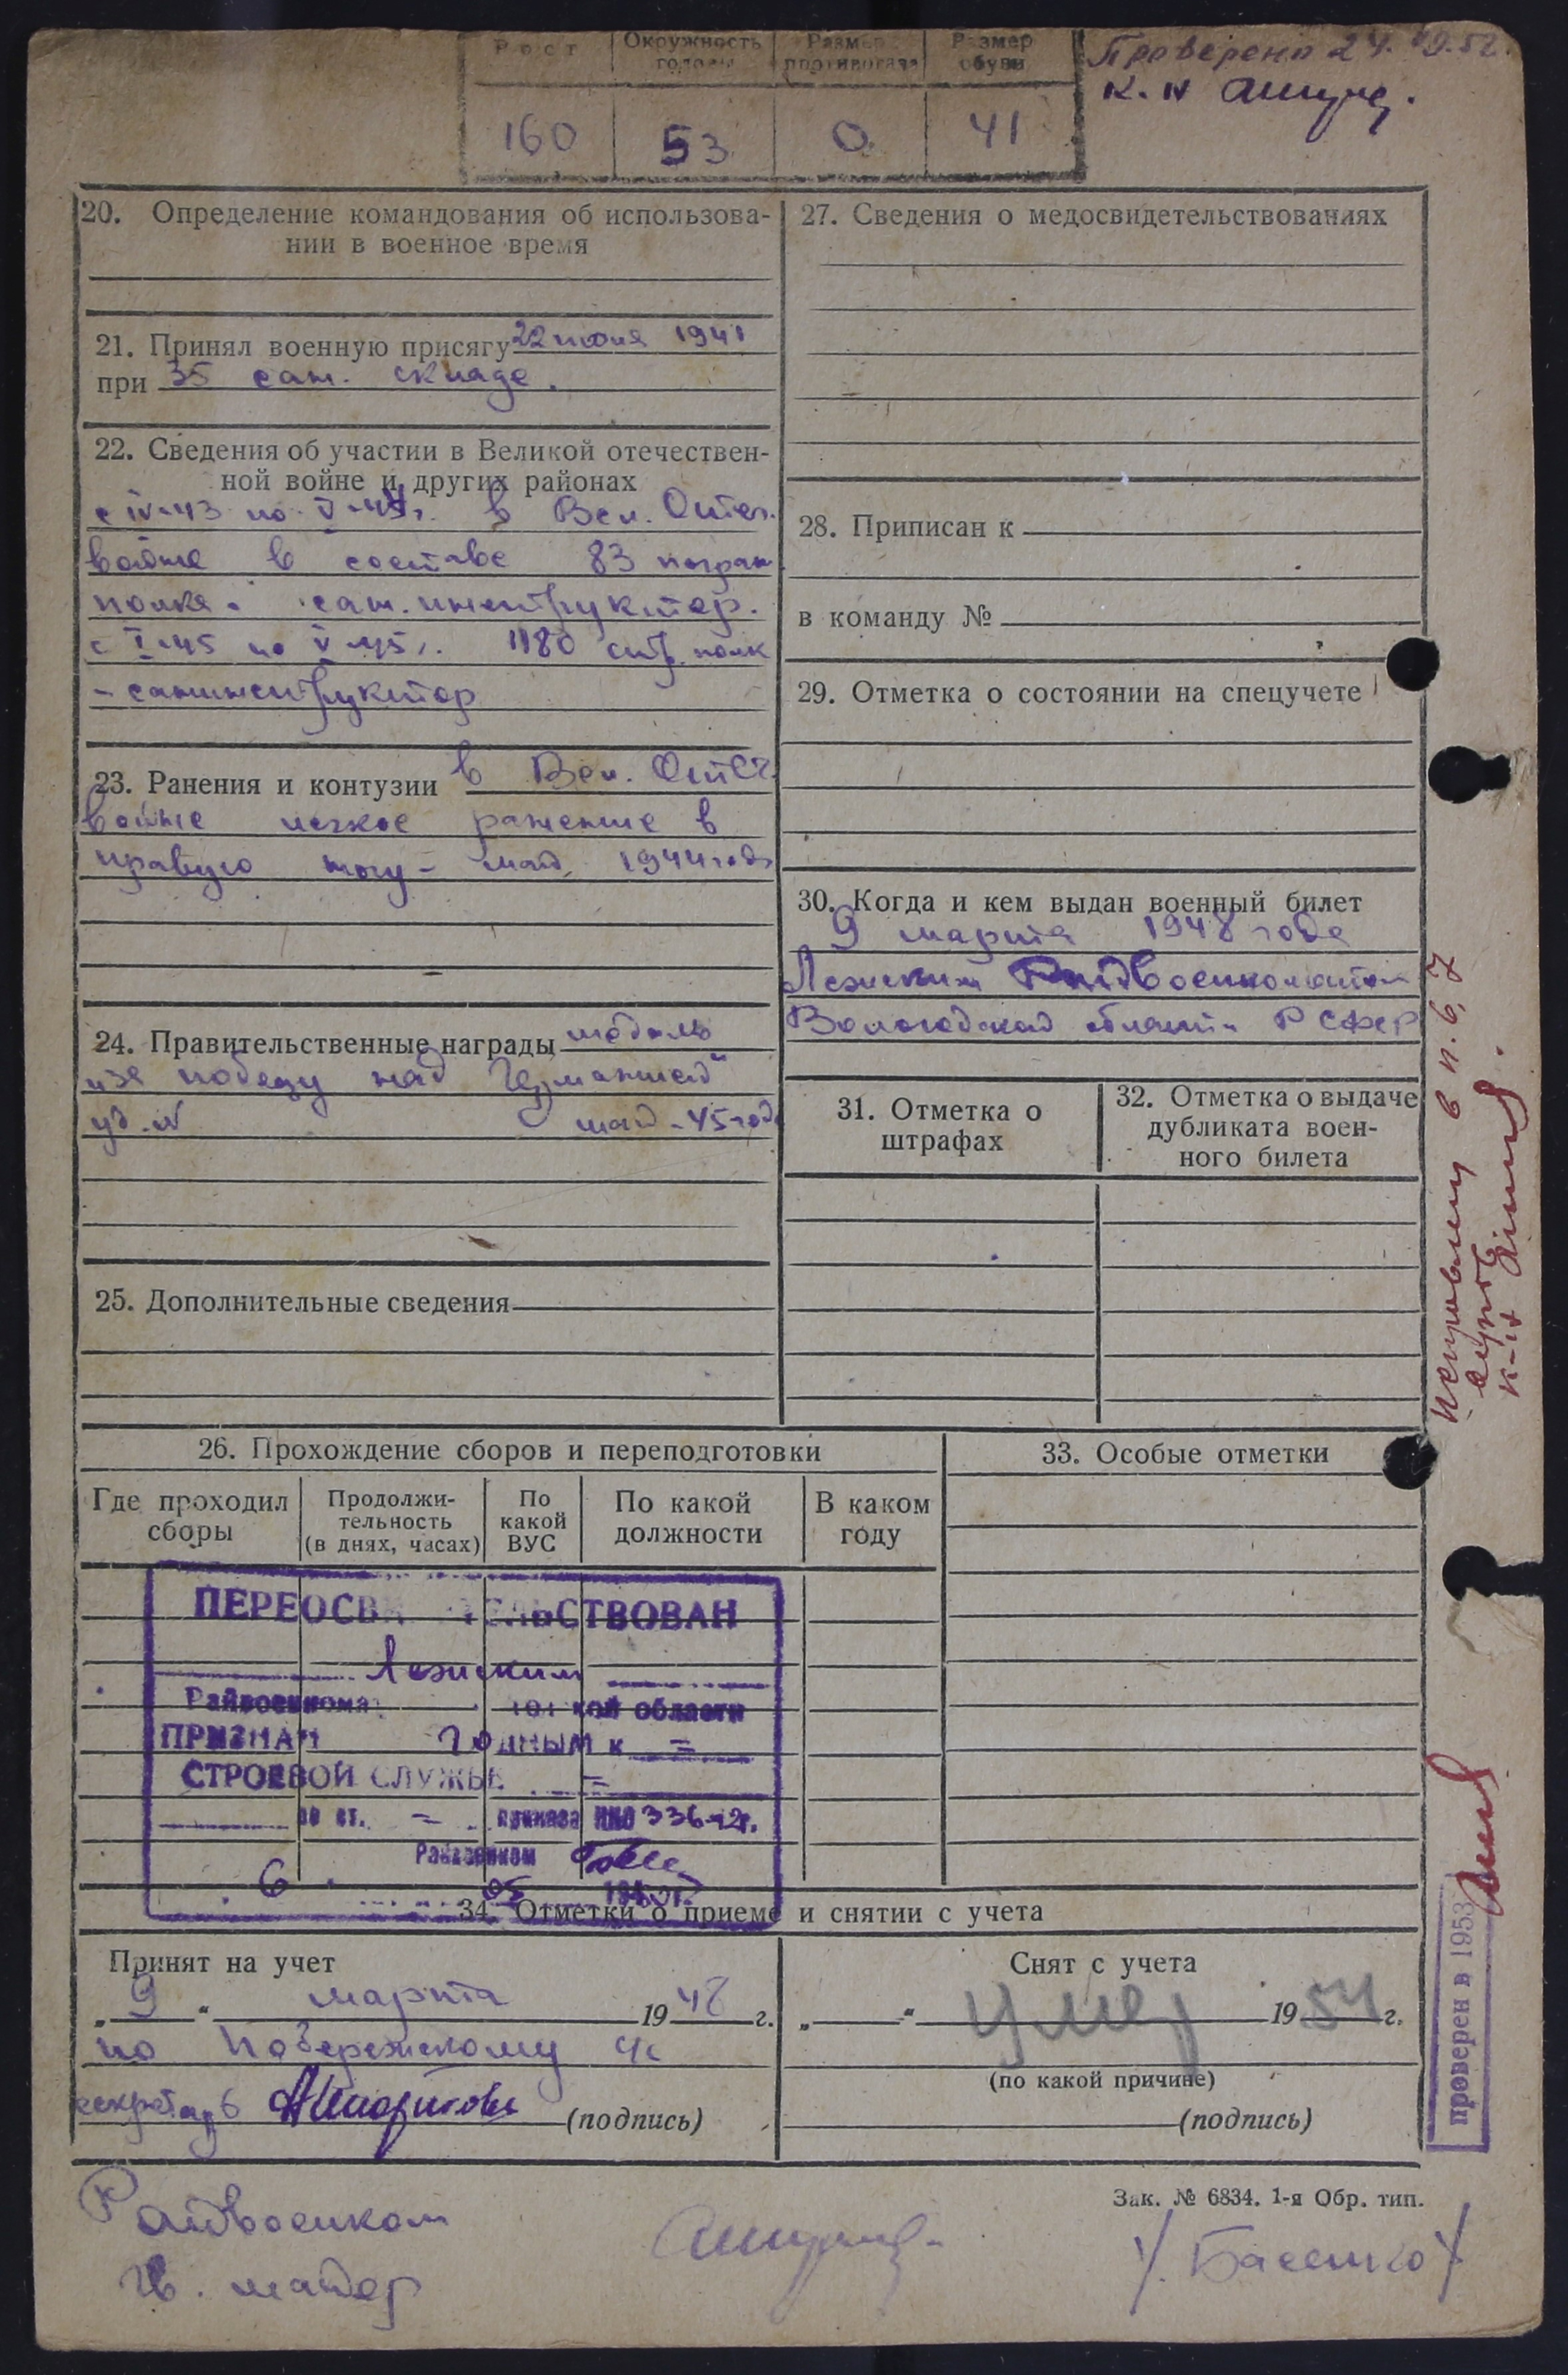 Рост Окружность головы Размер противогаза Размер обуви
160 53 0 41
Проверено 24. 52
20. Определение командования об использова-
нии в военное время
21. Принял военную присягу 22 июня 1941
при 35 сан. складе.
22. Сведения об участии в Великой отечествен-
ной войне и других районах
с IV-43 по V-44г. в Вел. Отеч.
войне в составе 83 погран
полка. сан. инструктор.
с I-45 по V-45г. 1180 стр. полк
- санинструктор
23. Ранения и контузии в Вел. Отеч.
войне легкое ранение в
правую ногу - май 1944 года
24. Правительственные награды медаль
„за победу над Германией“
уд. № май - 45 года
25. Дополнительные сведения
26. Прохождение сборов и переподготовки
Где проходил сборы
Продолжи-
тельность
(в днях, часах)
По какой ВУС
По какой должности
В каком году
ПЕРЕОСВИДЕТЕЛЬСТВОВАН
Лежским
Райвоенкома области
ПРИЗНАН годным к =
СТРОЕВОЙ СЛУЖБЕ =
по ст. - приказа НКО 336-42г.
Райвоенком
6 05
27. Сведения о медосвидетельствованиях
28. Приписан к
в команду №
29. Отметка о состоянии на спецучете
30. Когда и кем выдан военный билет
9 марта 1948 года
Лежским Райвоенкоматом
Вологодской области РСФСР
31. Отметка о
штрафах
32. Отметка о выдаче
дубликата воен-
ного билета
33. Особые отметки
34. Отметки о приеме и снятии с учета
Принят на учет
„ 9 “ марта 1948 г.
по Побережскому
секретарь
(подпись)
Снят с учета
„ “ умер 1954 г.
(по какой причине)
(подпись)
Зак. № 6834. 1-я Обр. тип.
Райвоенком
Гв. майор
/Басенко/
в п. 6, 7
проверен в 1953